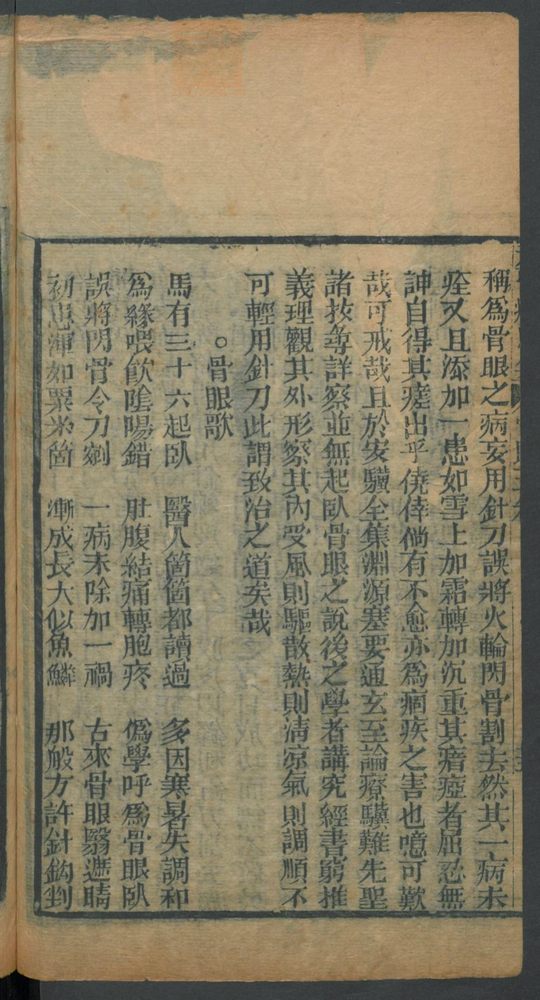 稱爲骨眼之病妄用針刀誤將火輪閃骨割去然其一病未
痊又且添加一患如雪上加霜轉加沉重其瘖瘂者屈忍無
訷自得其瘥出乎僥倖倘有不愈亦爲痼疾之害也噫可歎
哉可戒哉且於安驥全集淵源塞要通玄至論療驥難先聖
諸技等詳察並無起卧骨眼之說後之學者講究經書窮推
義理觀其外形察其內受風則驅散熱則清凉氣則調順不
可輕用針刀此謂致治之道矣哉
○骨眼歌
馬有三十六起卧 醫人箇箇都讀過 多因寒暑失調和
爲緣喂飲陰陽錯 肚腹結痛轉胞疼 僞學呼爲骨眼卧
誤將閃骨令刀剜 一病未除加一禍 古來骨眼翳遮睛
初患渾如粟米箇 漸成長大似魚鱗 那般方許針鈎剉